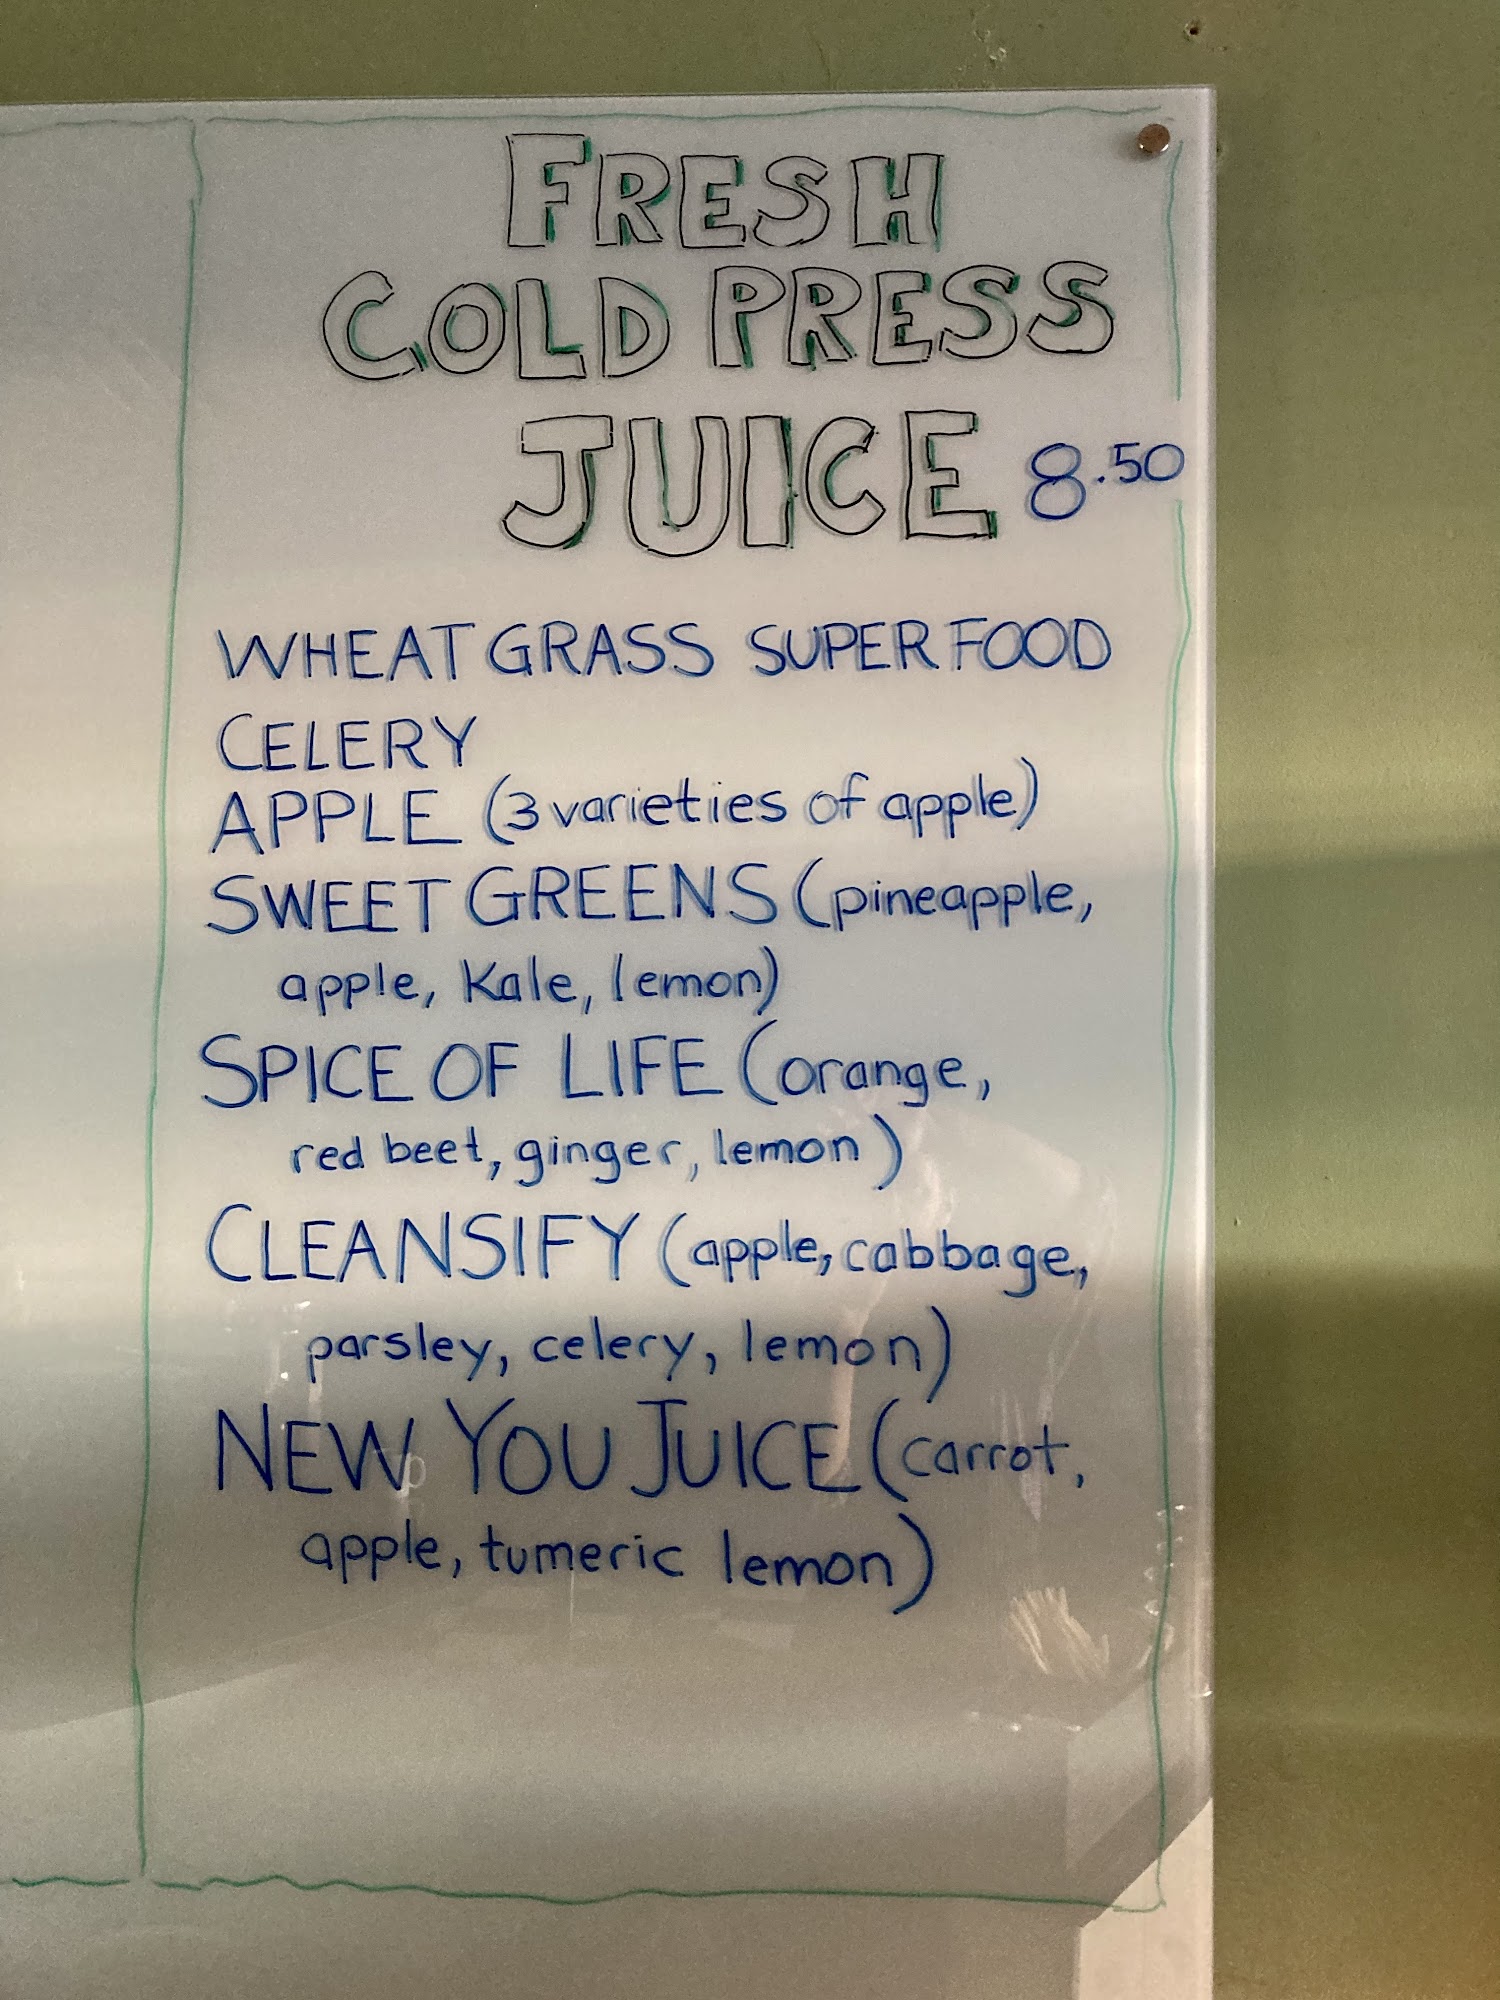 FRESH
COLD PRESS
JUICE 8.50
WHEAT GRASS SUPER FOOD
CELERY
APPLE (3 varieties of apple)
SWEET GREENS (pineapple,
apple, Kale, lemon)
SPICE OF LIFE (orange,
red beet, ginger, lemon)
CLEANSIFY (apple, cabbage,
parsley, celery, lemon)
NEW YOU JUICE (carrot,
apple, tumeric lemon)